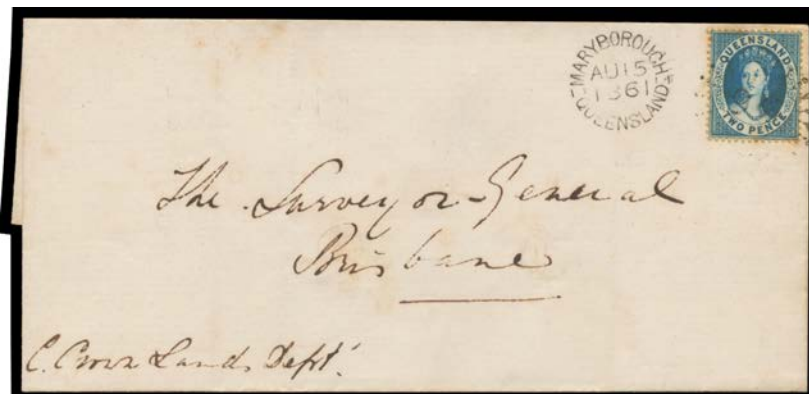 MARYBOROUGH
AU 15
1861
QUEENSLAND
QUEENSLAND
TWO PENCE
The Surveyor General
Brisbane
C. Crown Lands Dept.